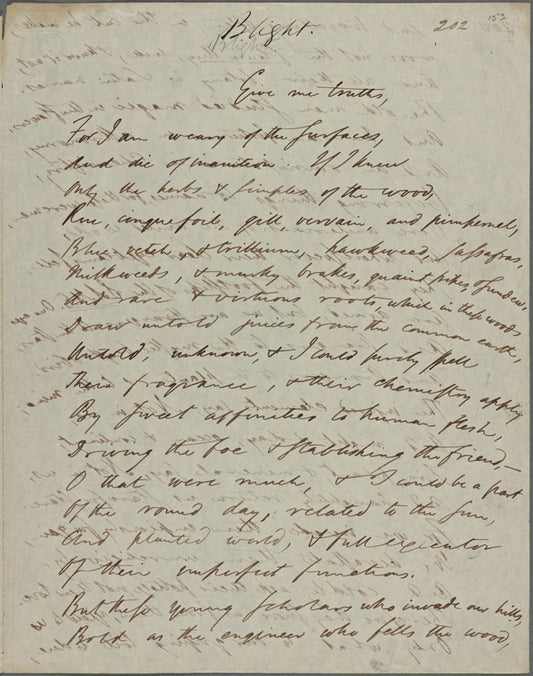 Blight.
202
152
Blight
Give me truths,
For I am weary of the surfaces,
And die of inanition. If I knew
Only the herbs & simples of the wood,
Rue, cinquefoil, gill, vervain, and pimpernel,
Blue-vetch, & trillium, hawkweed, sassafras,
Milkweeds, & murky brakes, quaint pipes & sundew,
And rare & virtuous roots, which in these woods
Draw untold juices from the common earth,
Untold, unknown, & I could surely spell
Their fragrance, & their chemistry apply
By sweet affinities to human flesh,
Driving the foe & stablishing the friend,—
O that were much, & I could be a part
Of the round day, related to the sun,
And planted world, & full executor
Of their imperfect functions.
But these young scholars who invade our hills,
Bold as the engineer who fells the wood,